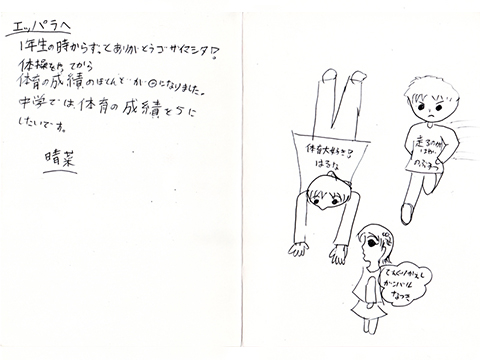 エッパラへ
1年生の時からずっとありがとうゴザイマシタ!
体操をやってから
体育の成績のほとんどが◎になりました。
中学では体育の成績を5に
したいです。
晴菜
体育大好き!
はるな
走るのが
のぶまつ
ガンバル
なつき